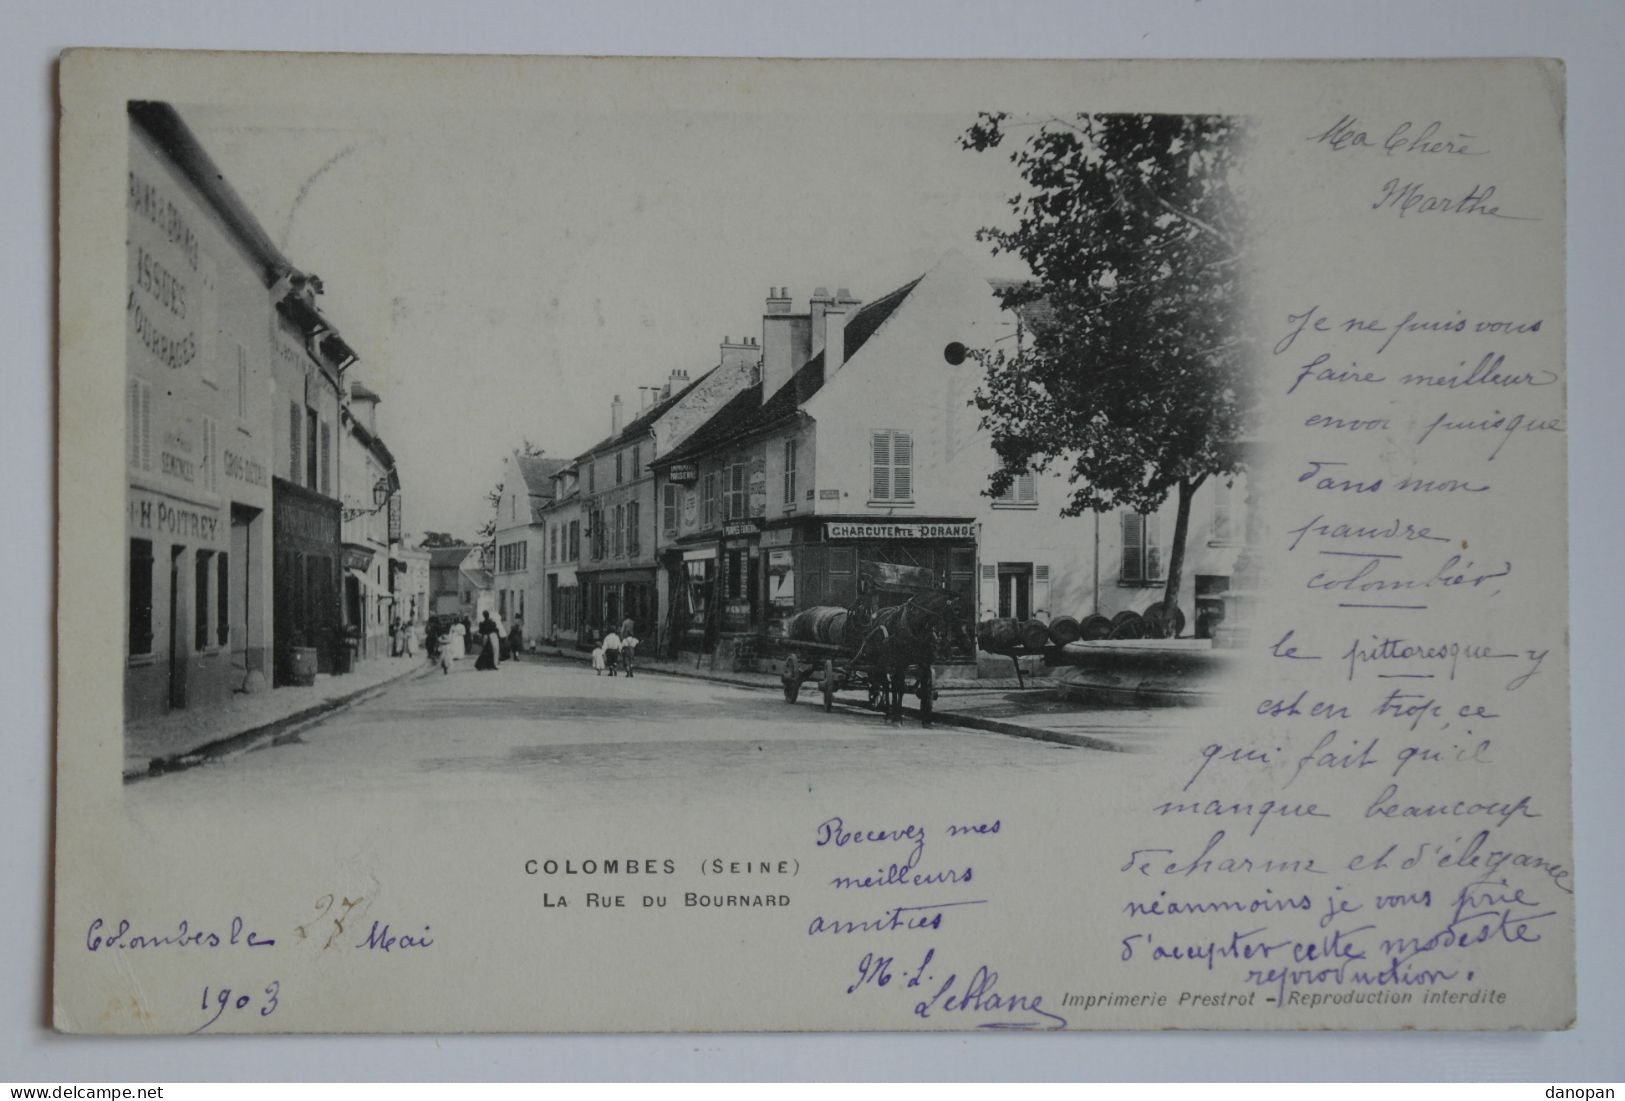 Ma Chère
Marthe
Je ne puis vous
faire meilleur
envoi puisque
dans mon
paudre
colombier,
le pittoresque y
est en trop, ce
qui fait qu'il
manque beaucoup
de charme et d'élégance
néanmoins je vous prie
d'accepter cette modeste
reproduction.
Recevez mes
meilleurs
amitiés
M. L.
Leblanc
Colombes le 27 Mai
1903
COLOMBES (SEINE)
LA RUE DU BOURNARD
Imprimerie Prestrot - Reproduction interdite
ISSUES
FOURRAGES
SEMENCES
GROS DETAIL
H POITREY
CHARCUTERIE DORANGE
danopan